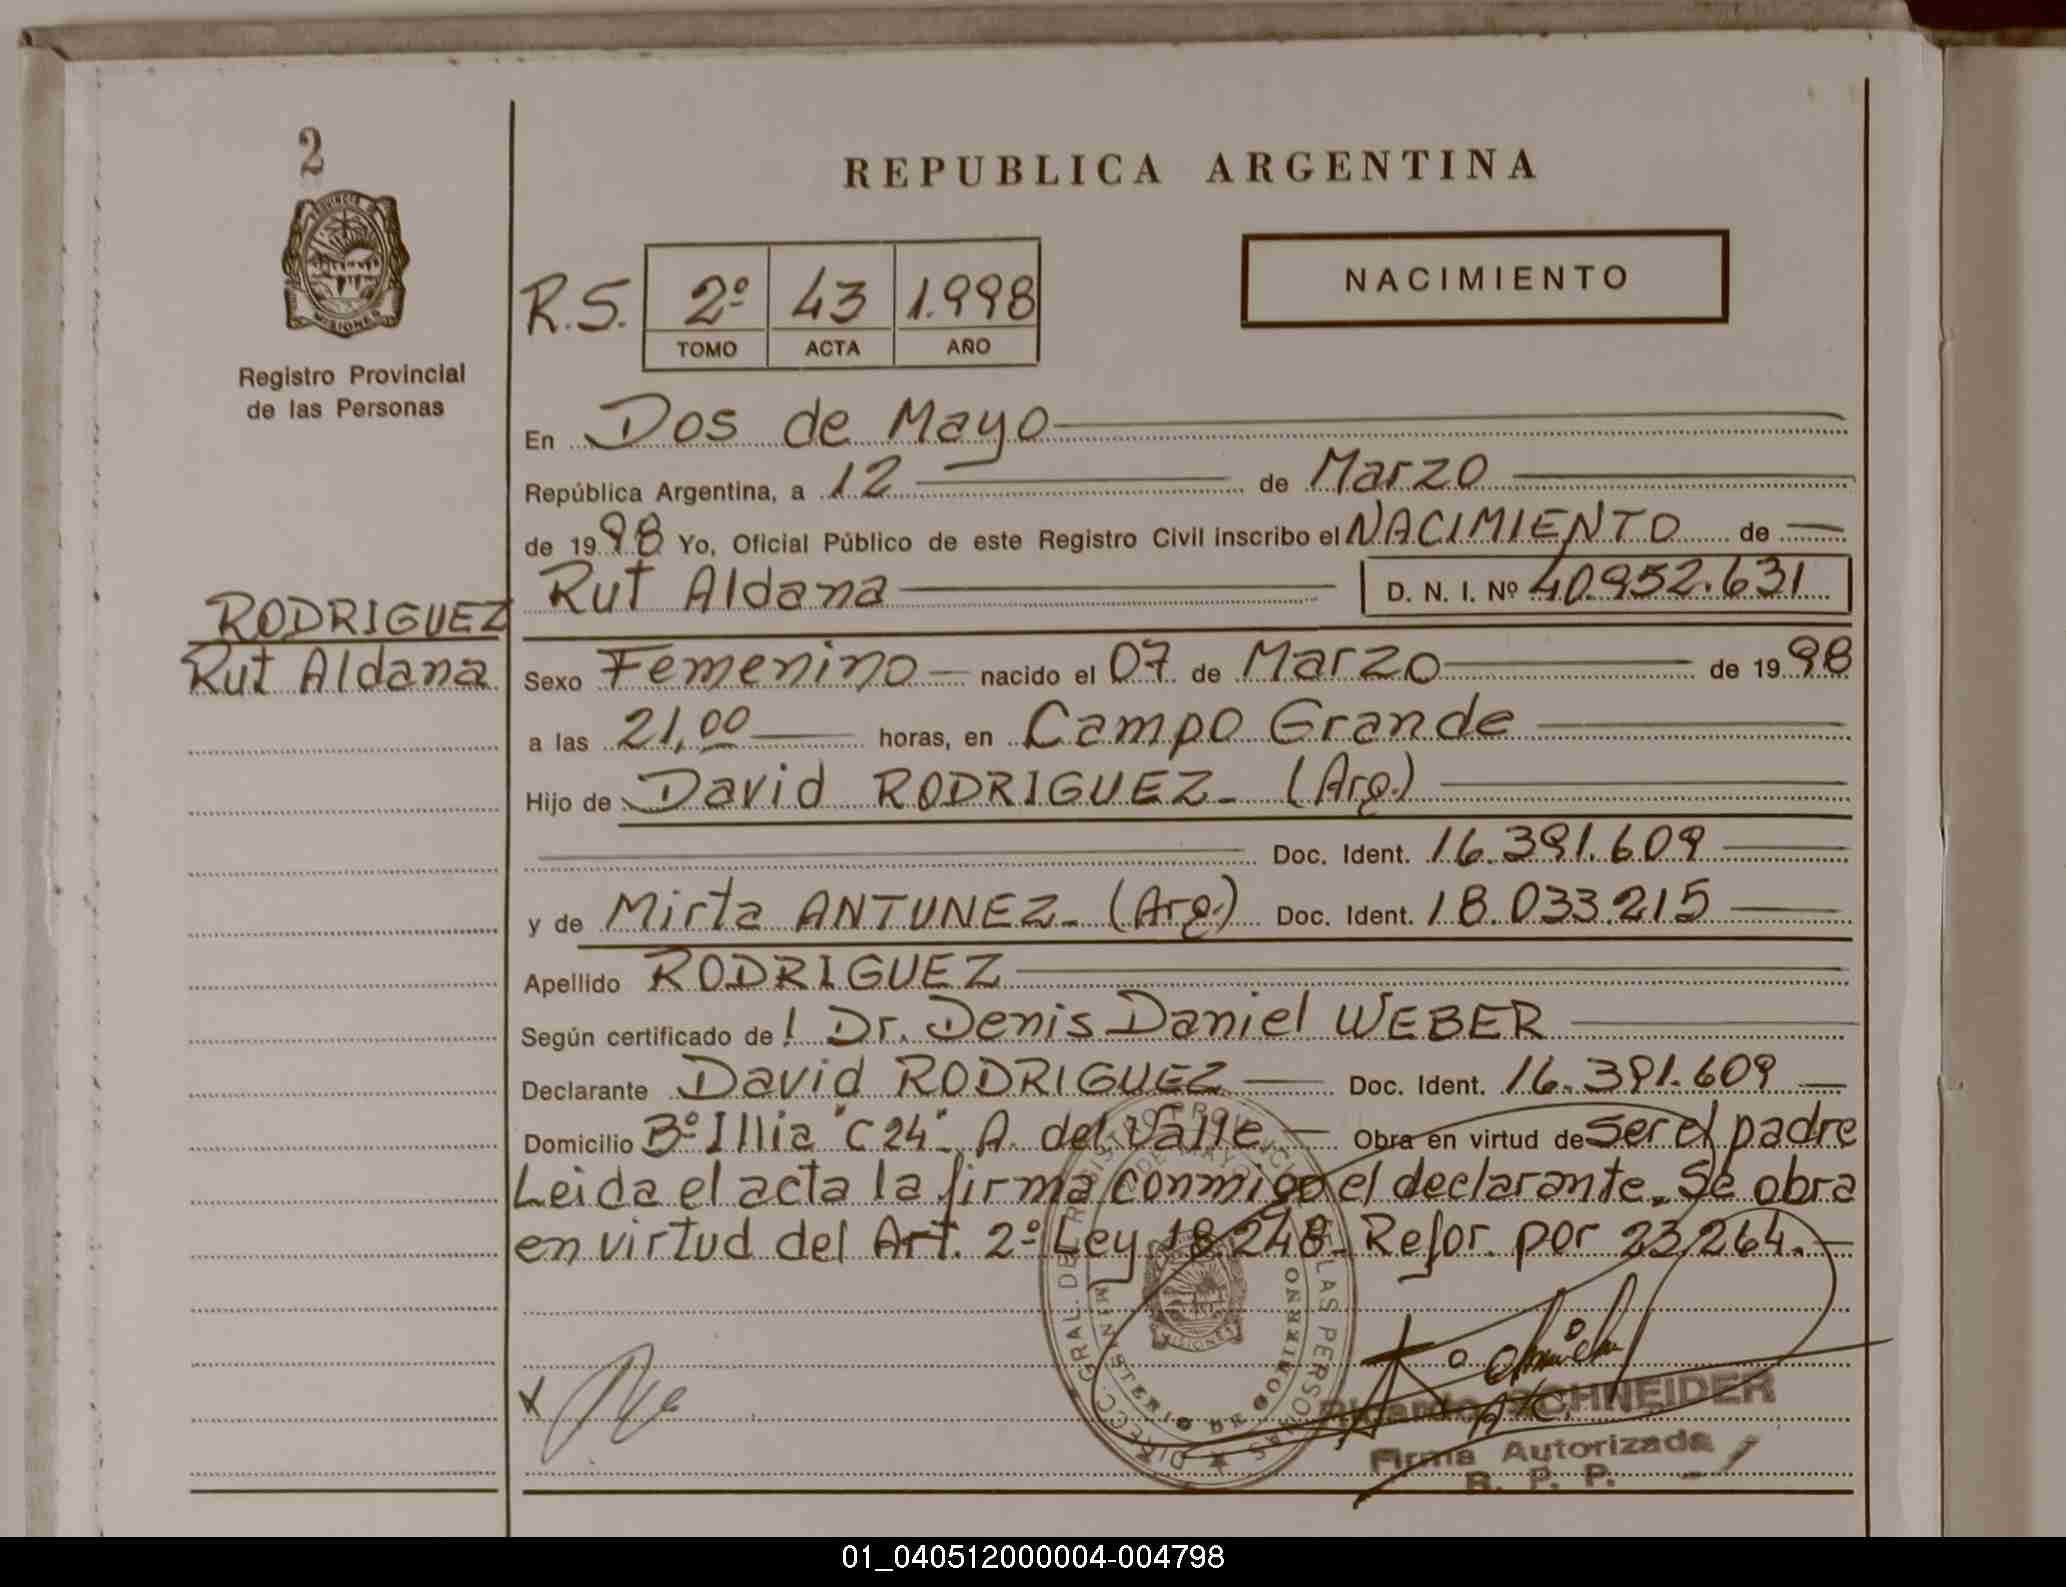 2
PROVINCIA DE
MISIONES
Registro Provincial
de las Personas
REPUBLICA ARGENTINA
NACIMIENTO
R.S. 2º 43 1.998
TOMO ACTA AÑO
En Dos de Mayo
República Argentina, a 12 de Marzo
de 1998 Yo, Oficial Público de este Registro Civil inscribo el NACIMIENTO de
Rut Aldana D. N. I. Nº 40.952.631
RODRIGUEZ
Rut Aldana
Sexo Femenino nacido el 07 de Marzo de 1998
a las 21,00 horas, en Campo Grande
Hijo de David RODRIGUEZ- (Arg.)
Doc. Ident. 16.391.609
y de Mirta ANTUNEZ- (Arg.) Doc. Ident. 18.033.215
Apellido RODRIGUEZ
Según certificado de! Dr. Denis Daniel WEBER
Declarante David RODRIGUEZ Doc. Ident. 16.391.609
Domicilio Bº Illia "C24"- A. del Valle Obra en virtud de ser el padre
Leida el acta la firma conmigo el declarante. Se obra
en virtud del Art. 2º Ley 18.248- Refor. por 23.264.-
DIRECC. GRAL. DEL REGISTRO PROVINCIAL DE LAS PERSONAS
DOS DE MAYO
MINISTERIO DE GOBIERNO
MISIONES
Ricardo SCHNEIDER
Firma Autorizada
R. P. P.
01_040512000004-004798